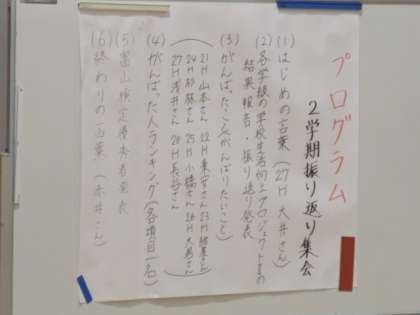 プログラム
2学期振り返り集会
(1) はじめの言葉 (27H 大井さん)
(2) 各学級の学校生活向上プロジェクトⅡの
結果報告・振り返り発表
(3) がんばったこと(がんばりたいこと)
21H 山本さん 22H さん 23H さん
24H 杉林さん 25H 小橋さん 26H 大島さん
27H 浅井さん 28H 長谷さん
(4) がんばった人ランキング (各項目一名)
(5) 富山検定優秀者発表
(6) 終わりの言葉 (赤井さん)